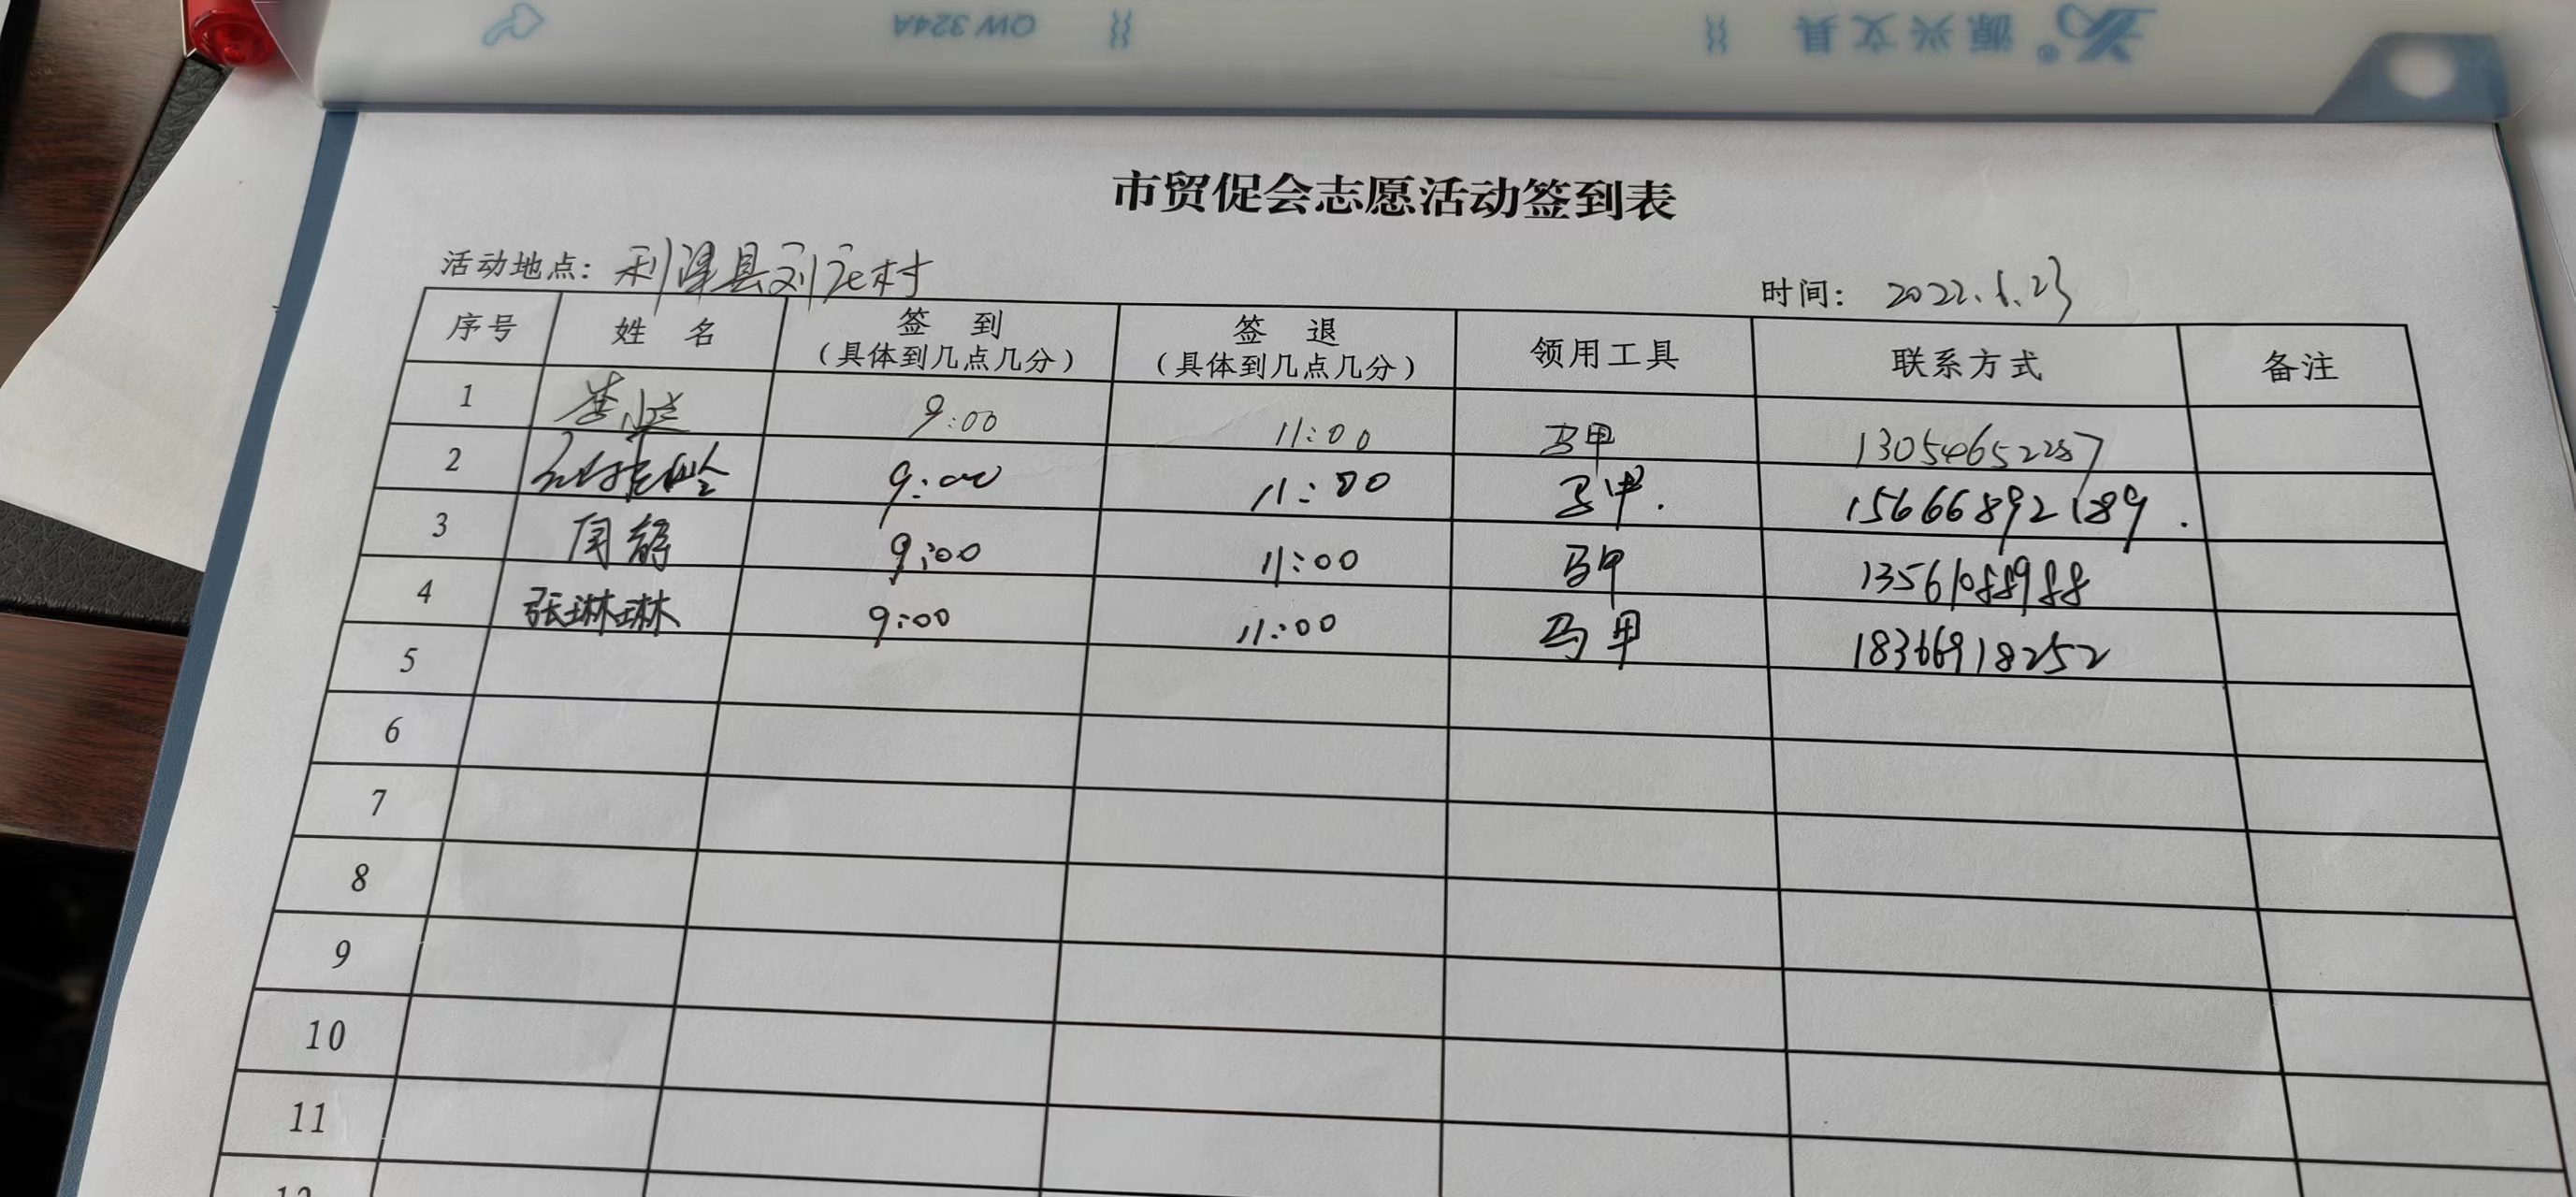 QW 324A
源兴文具
市贸促会志愿活动签到表
活动地点: 利津县刘庄村
时间: 2022.6.23
序号 姓名 签到 (具体到几点几分) 签退 (具体到几点几分) 领用工具 联系方式 备注
1 9:00 11:00 马甲 13054652287
2 9:00 11:00 马甲. 15666892189.
3 闫静 9:00 11:00 马甲 13561088988
4 张琳琳 9:00 11:00 马甲 18366918252
5
6
7
8
9
10
11
12